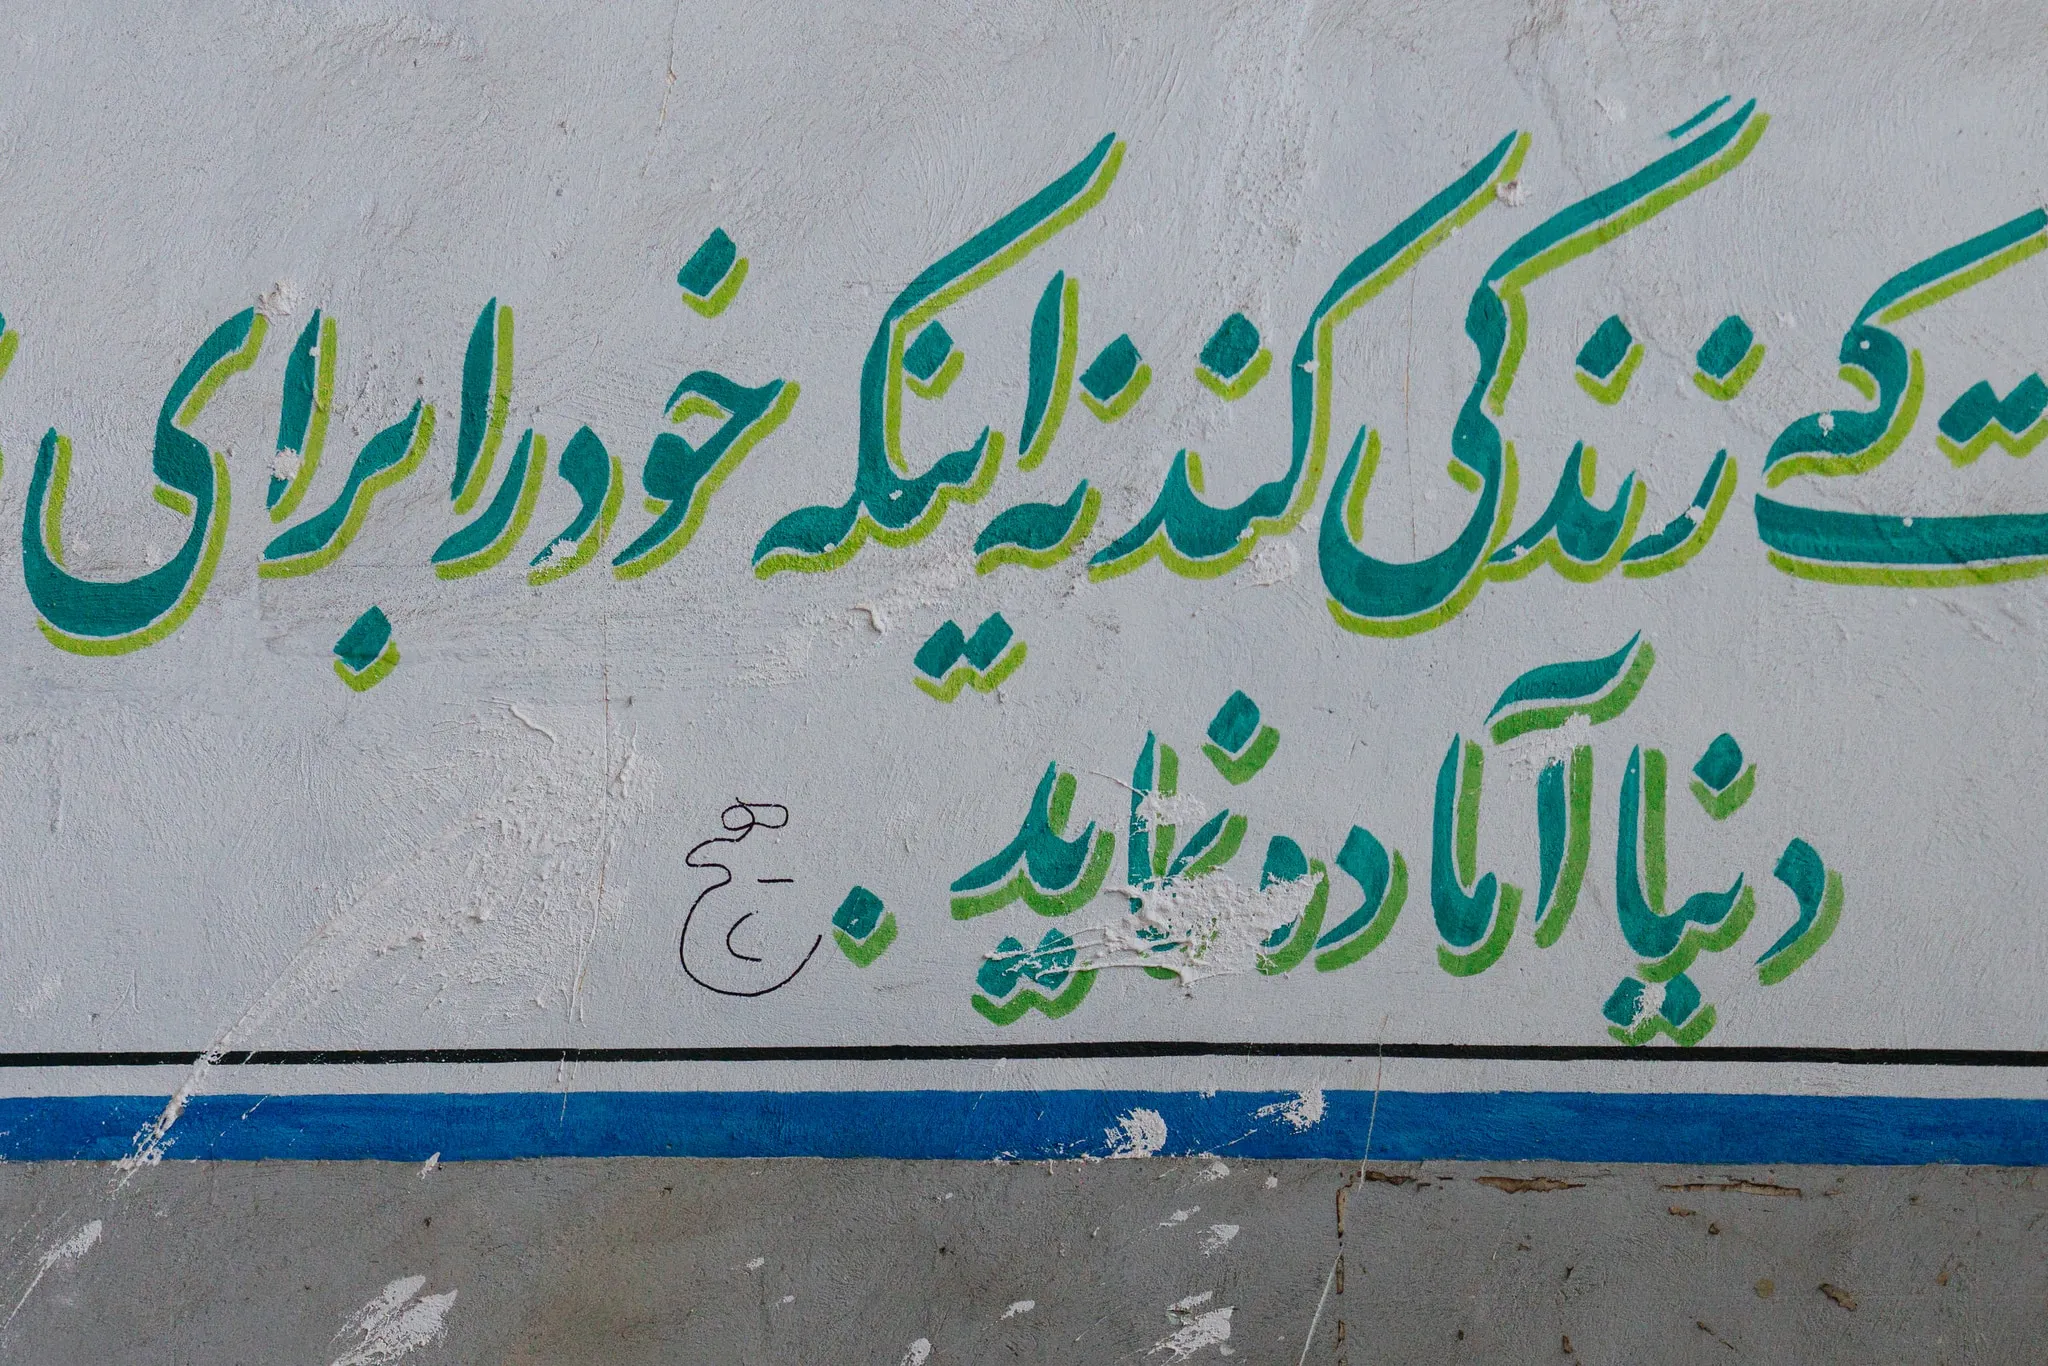 که زندگی کند نه اینکه خود را برای
دنیا آماده نماید.
هیچ